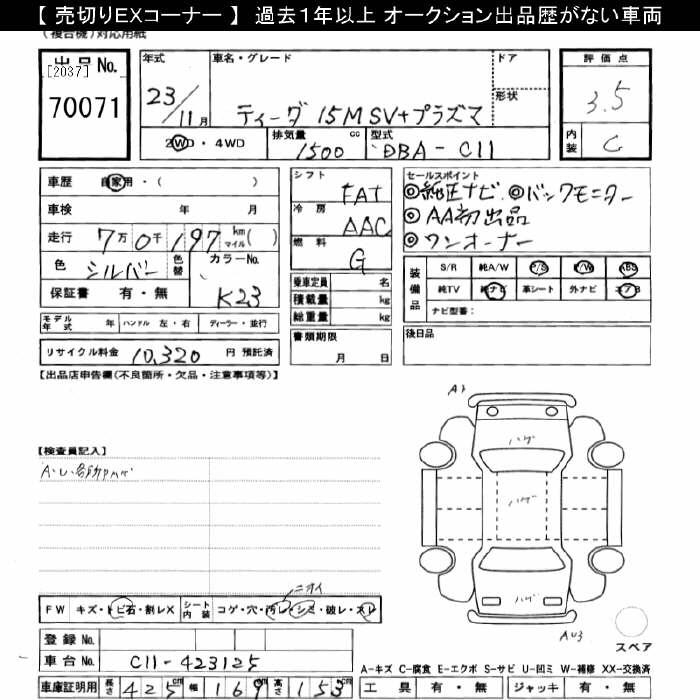 【 売切りEXコーナー 】 過去1年以上 オークション出品歴がない車両
(複合機)対応用紙
出品No.
[2037]
70071
年式
23/11月
車名・グレード
ティーダ 15M SV+プラズマ
ドア
形状
評価点
3.5
内装
C
2WD・4WD
排気量
1500 cc
型式
DBA-C11
車歴 自家用・( )
車検 年 月
走行 7万0千197 km マイル( )
色 シルバー 色替 カラーNo.
K23
保証書 有・無
シフト FAT
冷房 AAC
燃料 G
セールスポイント
◎純正ナビ ◎バックモニター
◎AA初出品
◎ワンオーナー
乗車定員 名
積載量 kg
総重量 kg
装備品
S/R 純A/W P/S P/W ABS
純TV 純ナビ 革シート 外ナビ エアB
ナビ型番:
モデル年式 年 ハンドル 左・右 ディーラー・並行
リサイクル料金 10,320 円 預託済
書類期限
月 日
後日品
【出品店申告欄(不良箇所・欠品・注意事項等)】
【検査員記入】
A・U各所
A1
ハゲ
ハゲ
ハゲ
AU3
スペア
ニオイ
FW キズ・トビ石・割レX シート内装 コゲ・穴・汚レ・シミ・破レ・スレ
登録No.
車台No. C11-423125
A-キズ C-腐食 E-エクボ S-サビ U-凹ミ W-補修 XX-交換済
車庫証明用 長さ 425cm 幅 169cm 高さ 153cm
工具 有・無 ジャッキ 有・無